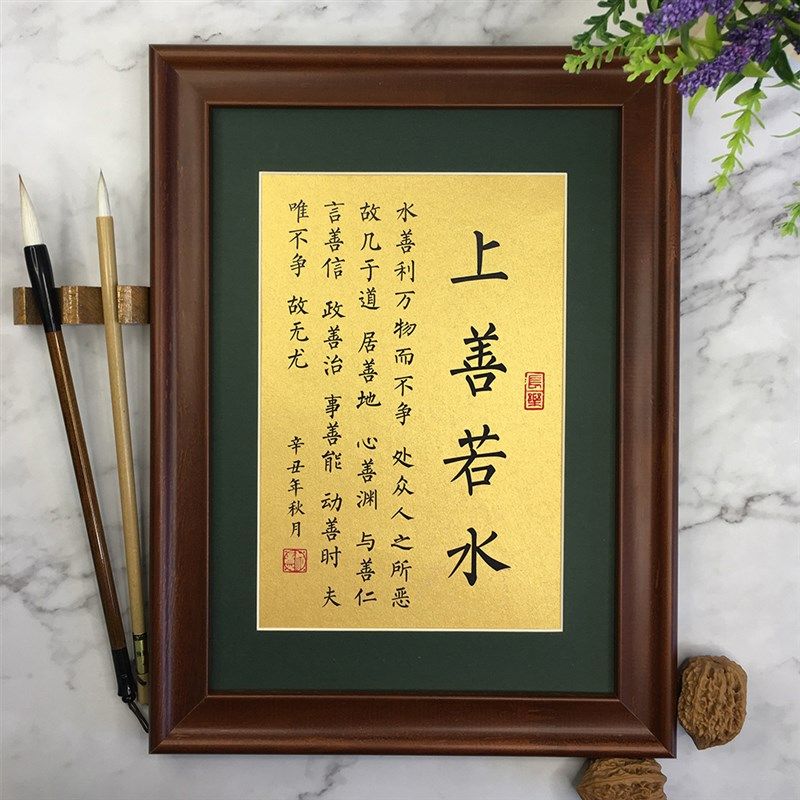 上善若水
水善利万物而不争 处众人之所恶
故几于道 居善地 心善渊 与善仁
言善信 政善治 事善能 动善时 夫
唯不争 故无尤
辛丑年秋月